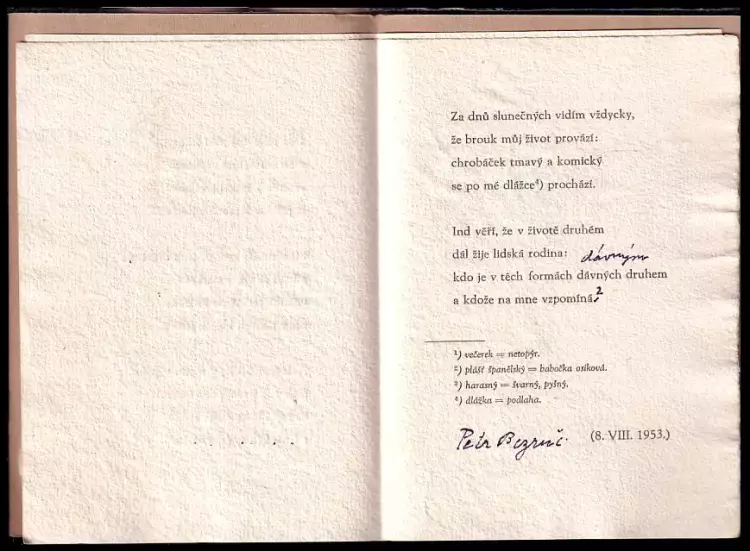 Za dnů slunečných vidím vždycky,
že brouk můj život provází:
chrobáček tmavý a komický
se po mé dlážce⁴) prochází.
Ind věří, že v životě druhém
dál žije lidská rodina:
dávným
kdo je v těch formách dávných druhem
a kdože na mne vzpomíná?
¹) večerek = netopýr.
²) plášť španělský = babočka osiková.
³) harasný = švarný, pyšný.
⁴) dlážka = podlaha.
Petr Bezruč. (8. VIII. 1953.)